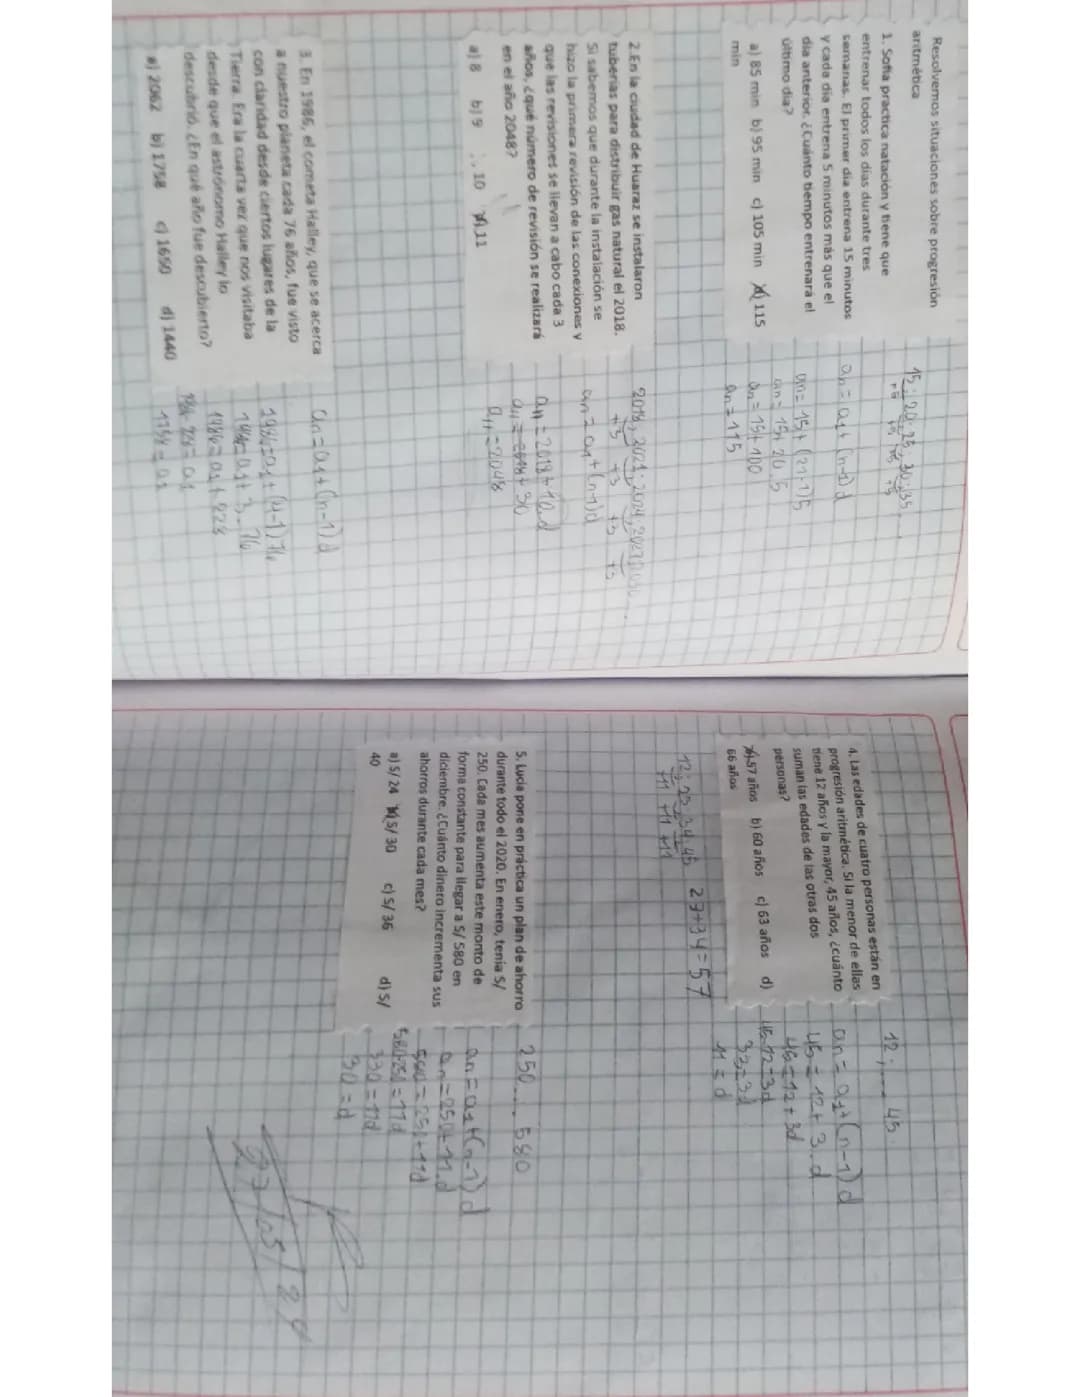 Resolvemos situaciones sobre progresión
aritmética
1. Sofia practica natación y tiene que
entrenar todos los días durante tres
semanas. El primer día entrena 15 minutos
y cada día entrena 5 minutos más que el
día anterior. ¿Cuánto tiempo entrenará el
último día?
a) 85 min b) 95 min c) 105 min d) 115
min
15; 20; 25; 30; 35
+5 +5 +5 +5
an = a1 + (n-1) d
an = 15 + (21-1)5
an = 15 + 20.5
an = 15 + 100
an = 115
2.En la ciudad de Huaraz se instalaron
tuberías para distribuir gas natural el 2018.
Si sabemos que durante la instalación se
hizo la primera revisión de las conexiones y
que las revisiones se llevan a cabo cada 3
años, ¿qué número de revisión se realizará
en el año 2048?
a) 8 b) 9 10 11
2018, 2021, 2024, 2027
+3 +3 +3 +3
an = a1 + (n-1)d
a11 = 2018 + 10.d
a11 = 2018 + 30
a11 = 2048
3. En 1986, el cometa Halley, que se acerca
a nuestro planeta cada 76 años, fue visto
con claridad desde ciertos lugares de la
Tierra. Era la cuarta vez que nos visitaba
desde que el astrónomo Halley lo
descubrió. ¿En qué año fue descubierto?
a) 2062 b) 1758 c) 1650 d) 1440
an = a1 + (n-1)d
1986 = a1 + (4-1)76
1986 = a1 + 3.76
1986 = a1 + 228
1986-228 = a1
1758 = a1
4. Las edades de cuatro personas están en
progresión aritmética. Si la menor de ellas
tiene 12 años y la mayor, 45 años, ¿cuánto
suman las edades de las otras dos
personas?
a) 57 años b) 60 años c) 63 años d)
66 años
12; .... 45
an = a1 + (n-1) d
45 = 12 + 3.d
45 = 12 + 3d
45-12 = 3d
33 = 3d
11 = d
12; 23; 34; 45 23+34=57
+11 +11 +11
5. Lucía pone en práctica un plan de ahorro
durante todo el 2020. En enero, tenía S/
250. Cada mes aumenta este monto de
forma constante para llegar a S/ 580 en
diciembre. ¿Cuánto dinero incrementa sus
ahorros durante cada mes?
a) S/ 24 b) S/ 30 c) S/ 36 d) S/
40
250 .... 580
an = a1 + (n-1) d
an = 250 + 11.d
580 = 250 + 11d
580-250 = 11d
330 = 11d
30 = d